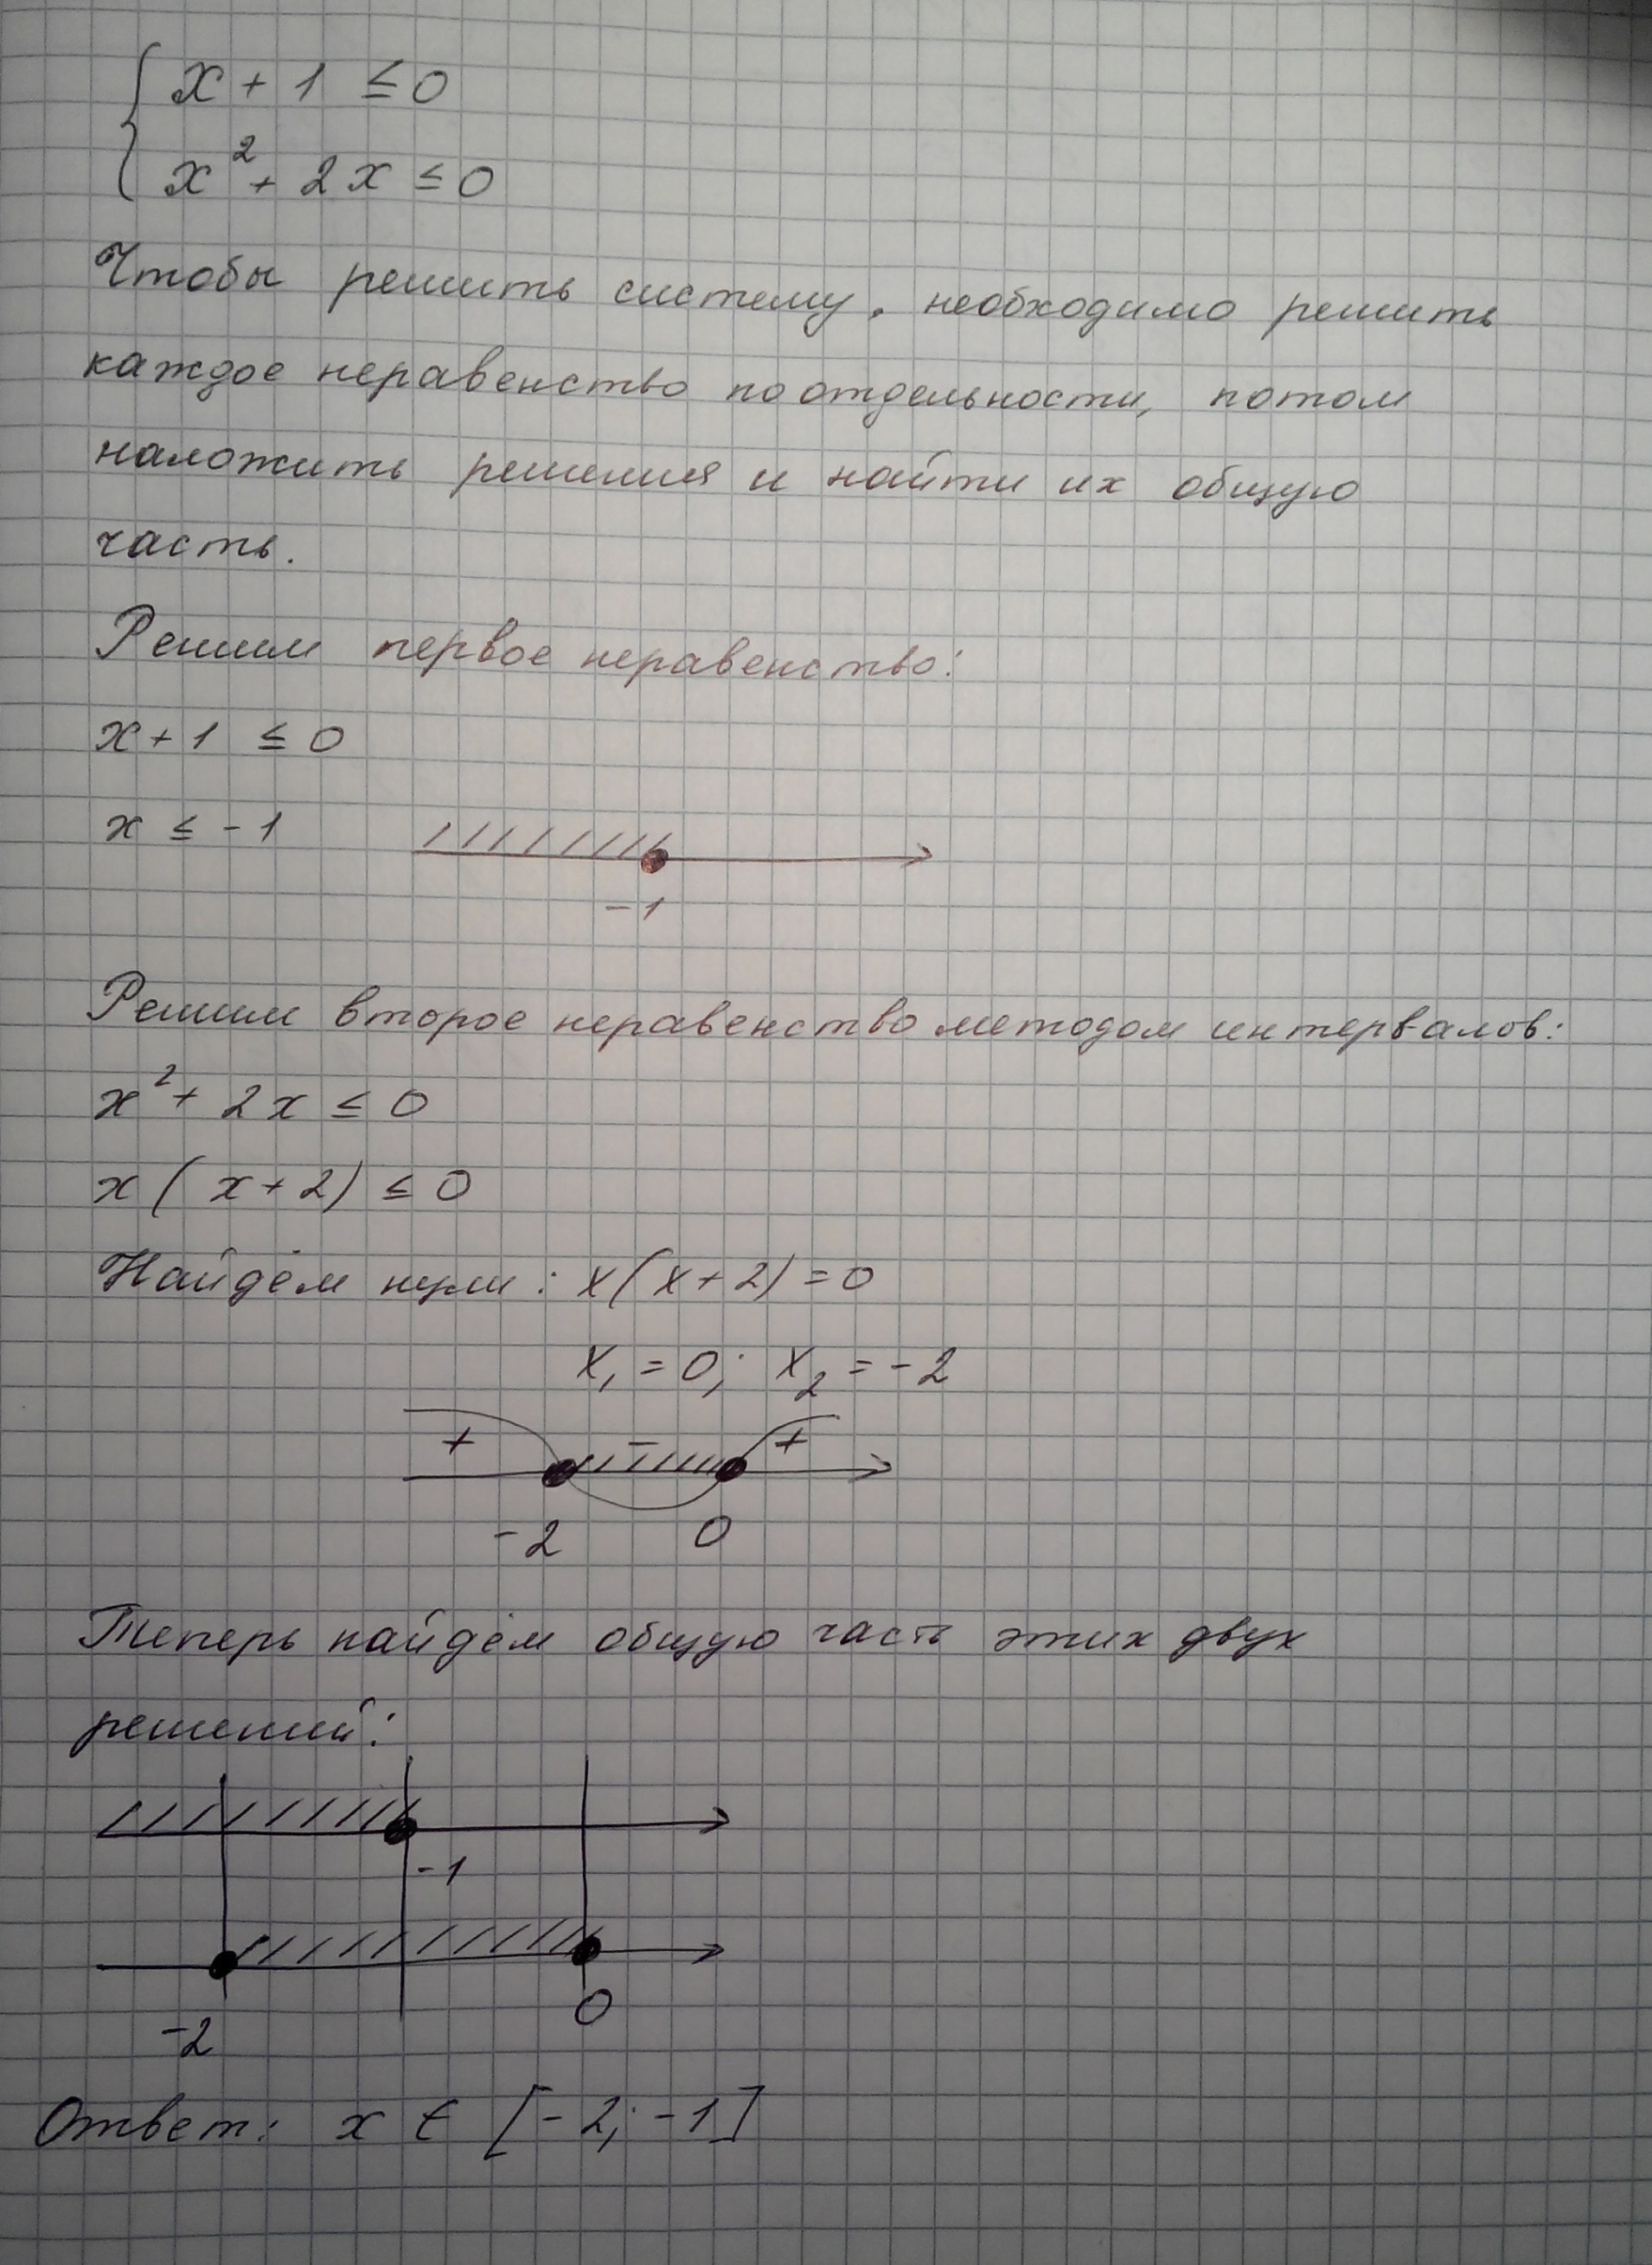 { x + 1 ≤ 0
x² + 2x ≤ 0
Чтобы решить систему, необходимо решить
каждое неравенство по отдельности, потом
наложить решения и найти их общую
часть.
Решим первое неравенство:
x + 1 ≤ 0
x ≤ -1
-1
Решим второе неравенство методом интервалов:
x² + 2x ≤ 0
x ( x + 2) ≤ 0
Найдём нули: x(x + 2) = 0
x₁ = 0; x₂ = -2
+ − +
-2 0
Теперь найдём общую часть этих двух
решений:
-1
-2 0
Ответ: x ∈ [-2; -1]